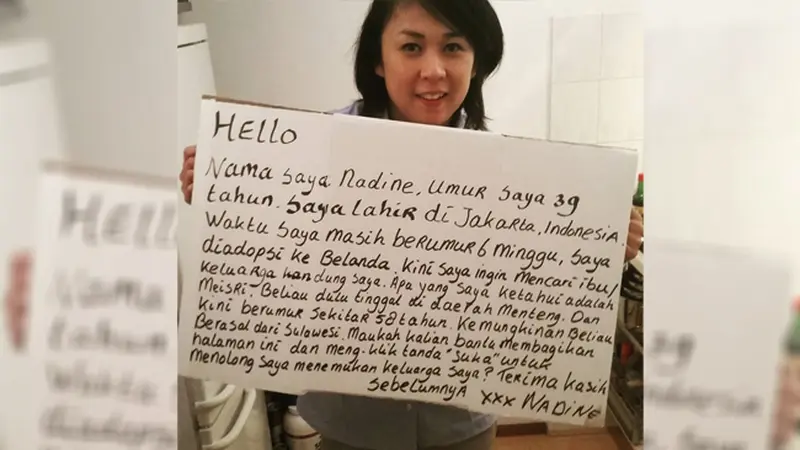 HELLO
Nama saya Nadine, Umur saya 39
tahun. Saya lahir di Jakarta, Indonesia.
Waktu saya masih berumur 6 minggu, saya
diadopsi ke Belanda. Kini saya ingin mencari ibu/
keluarga kandung saya. Apa yang saya ketahui adalah
Meisri. Beliau dulu tinggal di daerah Menteng. Dan
kini berumur sekitar 58 tahun. Kemungkinan Beliau
Berasal dari Sulawesi. Maukah kalian bantu membagikan
halaman ini dan meng-klik tanda "suka" untuk
menolong saya menemukan keluarga saya? Terima kasih
sebelumnya xxx NADINE